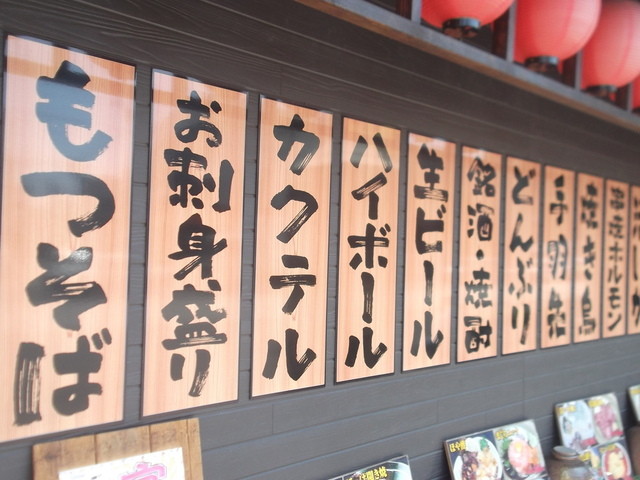 もつそば
お刺身盛り
カクテル
ハイボール
生ビール
銘酒・焼酎
どんぶり
手羽先
焼き鳥
串焼ホルモン